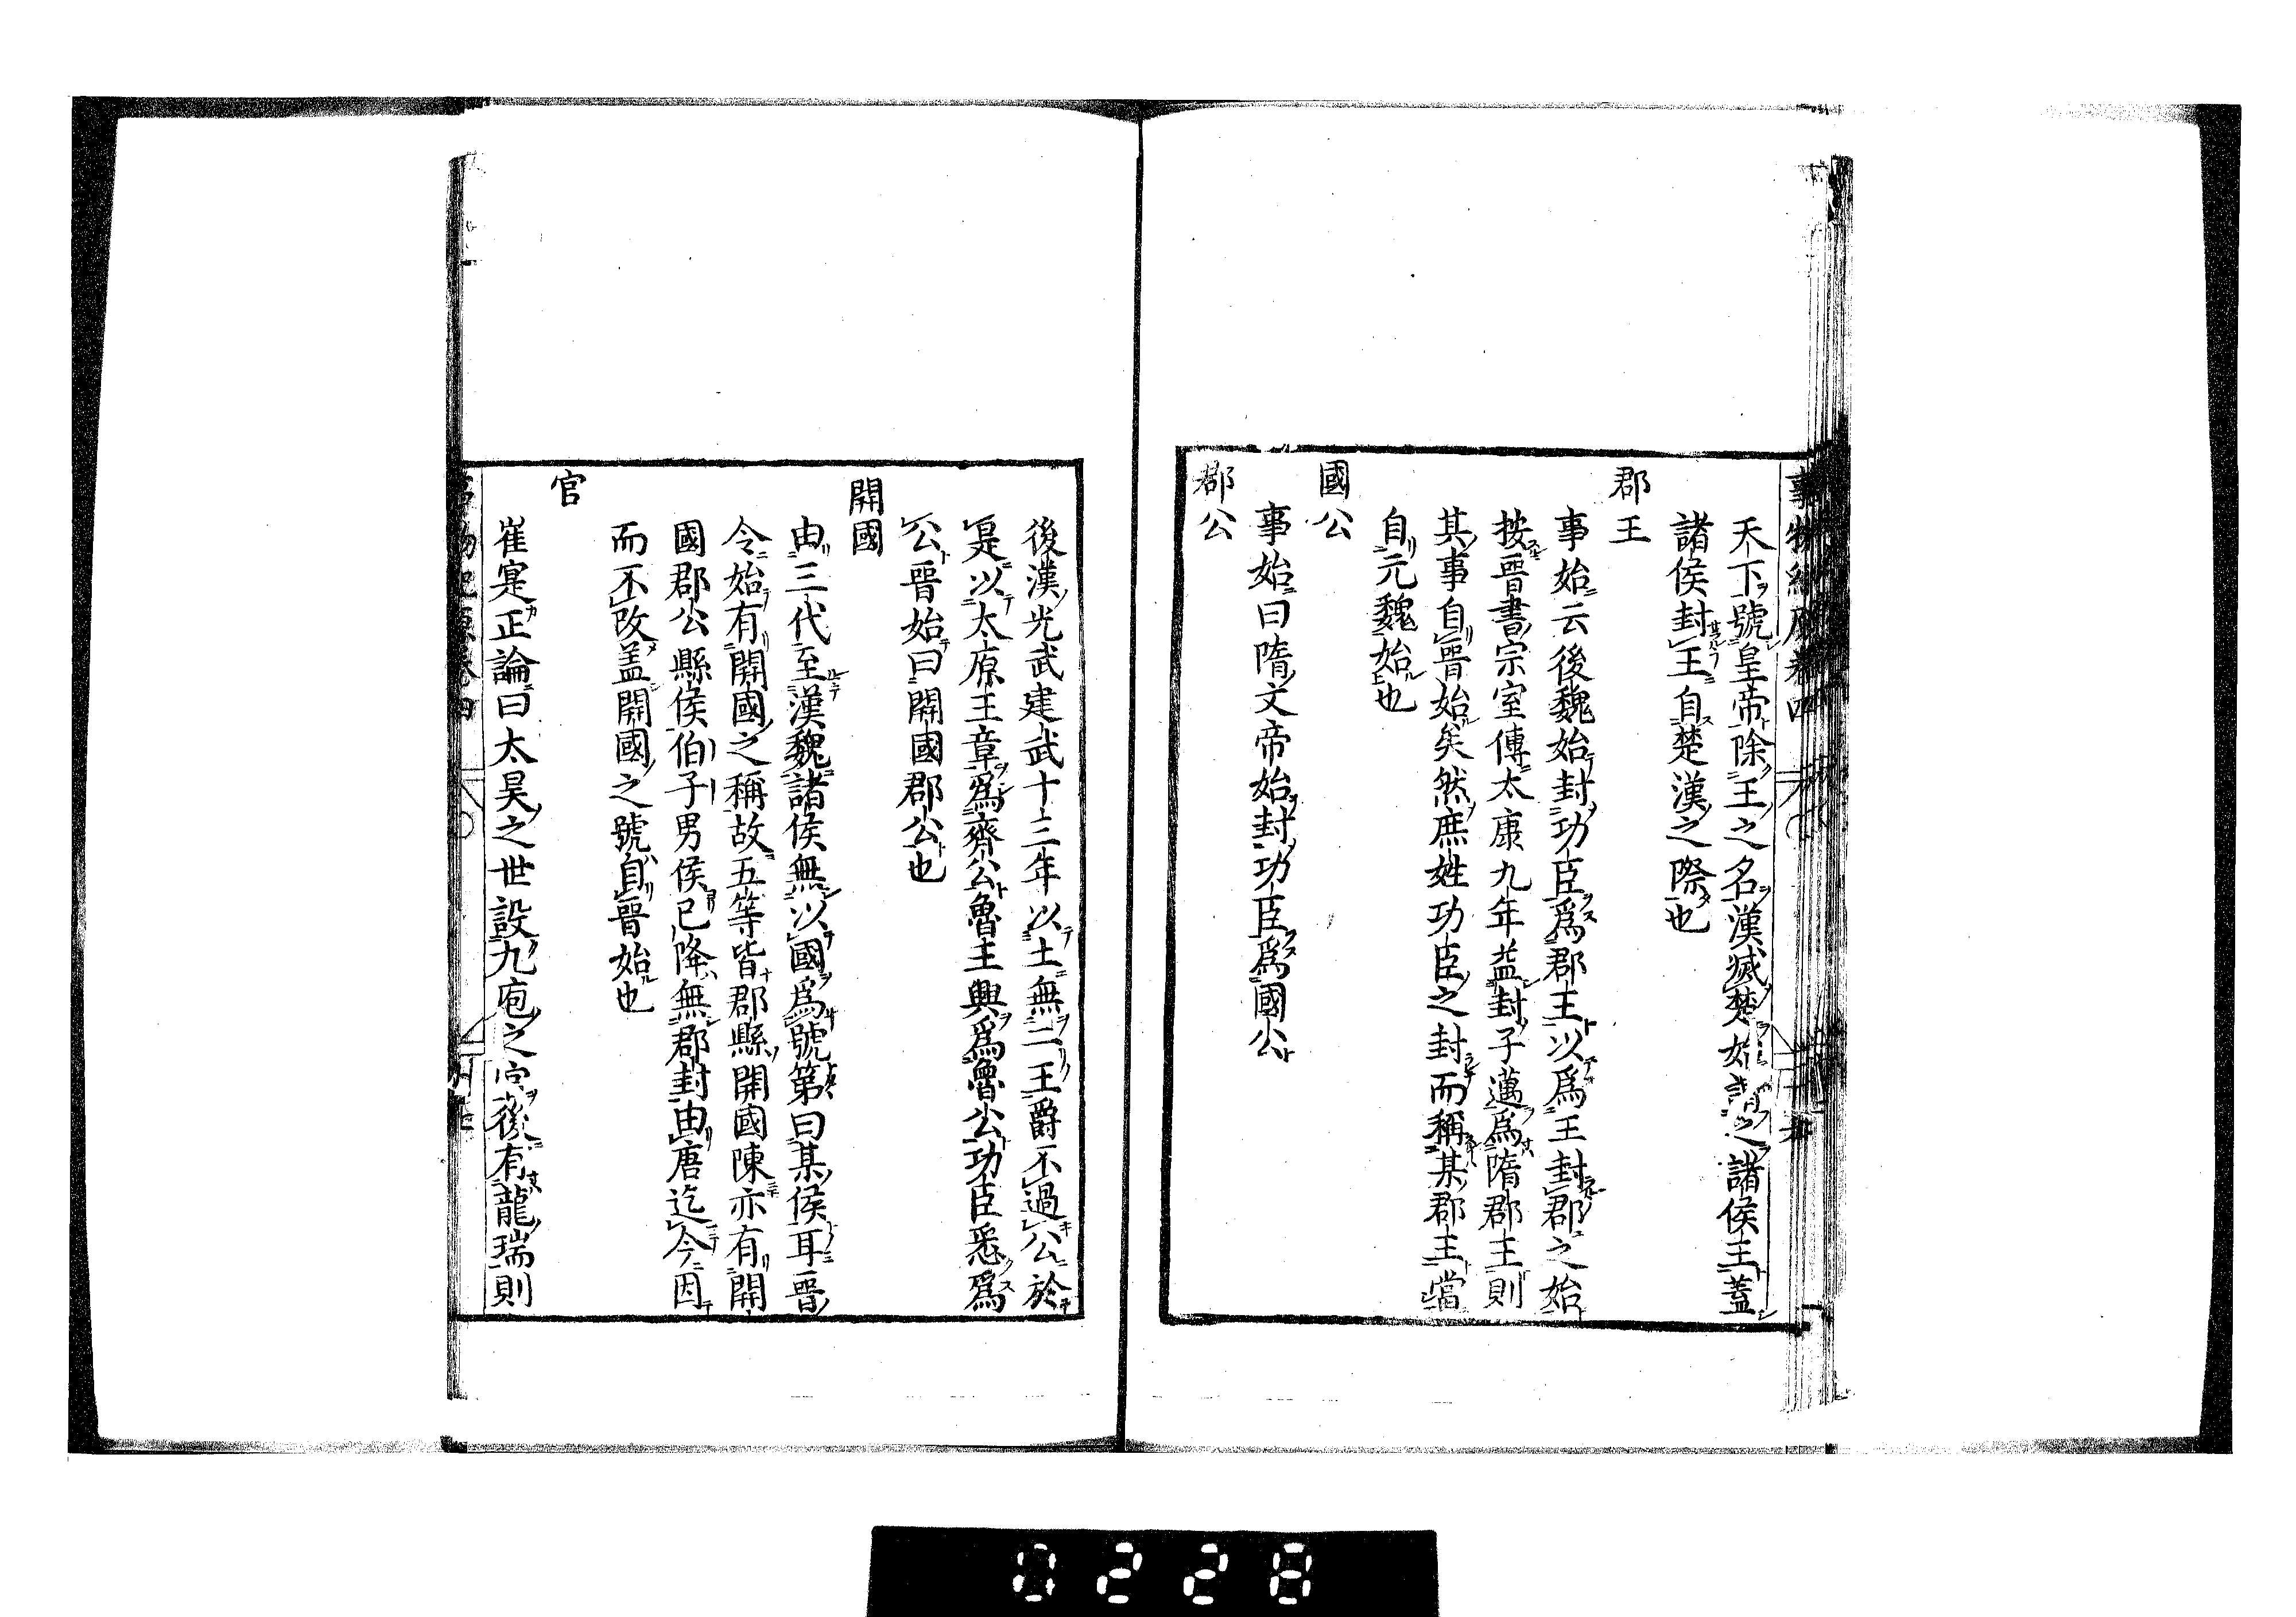 天下號皇帝除王之名漢滅楚始謂之諸侯王蓋
諸侯封王自楚漢之際也
郡王
事始云後魏始封功臣爲郡王以爲王封郡之始
按晉書宗室傳太康九年益封子邁爲隋郡王則
其事自晉始矣然庶姓功臣之封而稱某郡王當
自元魏始也
國公
事始曰隋文帝始封功臣爲國公
郡公
後漢光武建武十三年以土無二王爵不過公於
是以太原王章爲齊公魯王興爲魯公功臣悉爲
公晉始曰開國郡公也
開國
由三代至漢魏諸侯無以國爲號第曰某侯耳晉
令始有開國之稱故五等皆郡縣開國陳亦有開
國郡公縣侯伯子男侯已降無郡封由唐迄今因
而不改盖開國之號自晉始也
官
崔寔正論曰太昊之世設九庖之官後有龍瑞則
0228